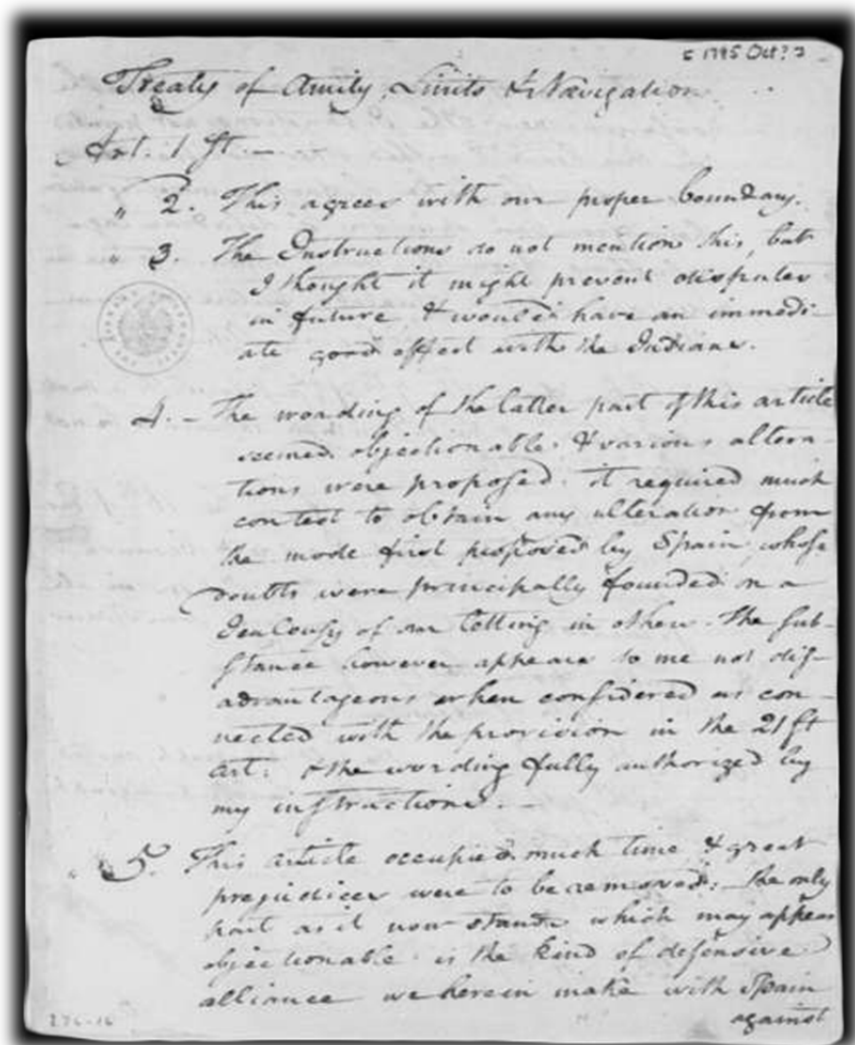 c 1795 Oct? ?
Treaty of Amity, Limits & Navigation
Art. 1 st. —
" 2. This agrees with our proper boundary.
" 3. The Instructions do not mention this, but
I thought it might prevent disputes
in future, & would have an immedi-
ate good effect with the Indians.
4. - The wording of the latter part of this article
seemed objectionable, & various altera-
tions were proposed. it required much
contest to obtain any alteration from
the mode first proposed by Spain, whose
doubts were principally founded on a
Jealousy of our letting in others. The sub-
stance however appears to me not dis-
advantageous when considered as con-
nected with the provision in the 21st
art: & the wording fully authorized by
my instructions. —
" 5. This article occupied much time & great
prejudices were to be removed: the only
part as it now stands which may appear
objectionable is the kind of defensive
alliance we herein make with Spain
against